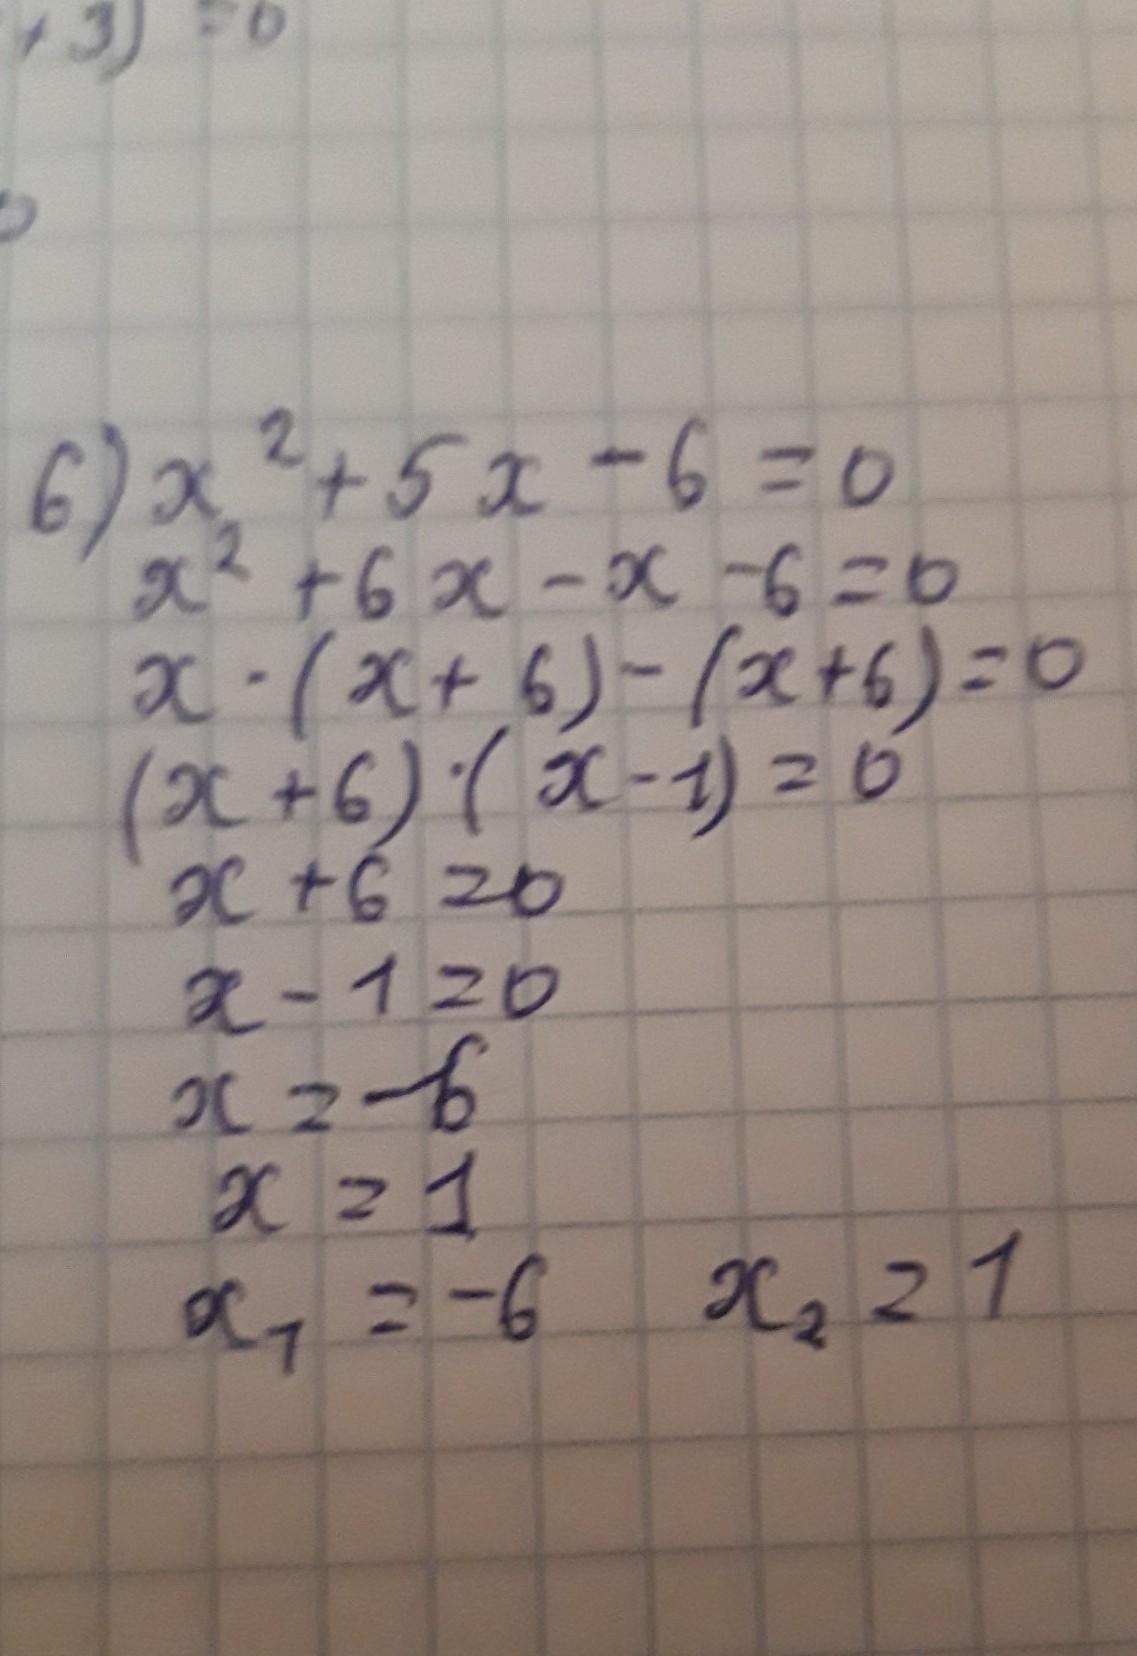 +3) =0
6) x² + 5x - 6 = 0
x² + 6x - x - 6 = 0
x · (x + 6) - (x + 6) = 0
(x + 6) · (x - 1) = 0
x + 6 = 0
x - 1 = 0
x = -6
x = 1
x₁ = -6 x₂ = 1